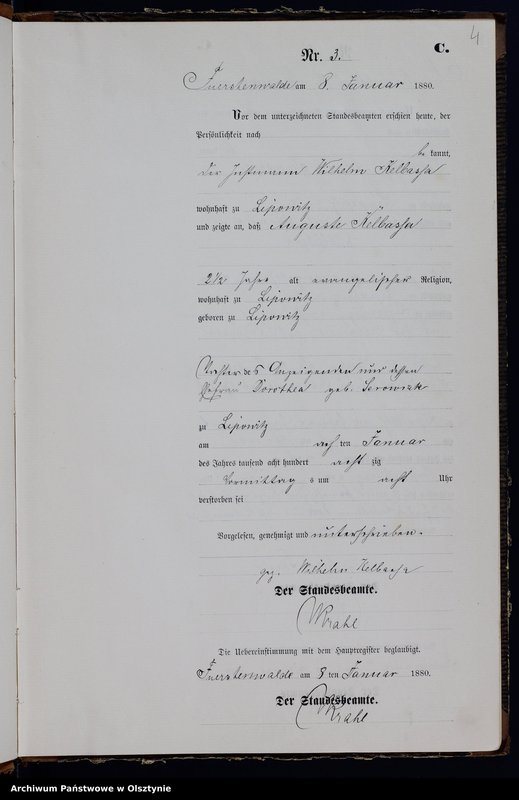 4
C.
Nr. 3.
Fuerstenwalde am 8. Januar 1880.
Vor dem unterzeichneten Standesbeamten erschien heute, der
Persönlichkeit nach
be kannt,
der Instmann Wilhelm Kelbassa
wohnhaft zu Lipowitz
und zeigte an, daß Auguste Kelbassa
2 1/2 Jahre alt evangelischer Religion,
wohnhaft zu Lipowitz
geboren zu Lipowitz
Tochter des Anzeigenden und dessen
Ehefrau Dorothea geb.
zu Lipowitz
am acht ten Januar
des Jahres tausend acht hundert acht zig
Vormittag s um acht Uhr
verstorben sei
Vorgelesen, genehmigt und unterschrieben.
gez. Wilhelm Kelbassa
Der Standesbeamte.
Krahl
Die Uebereinstimmung mit dem Hauptregister beglaubigt.
Fuerstenwalde am 8 ten Januar 1880.
Der Standesbeamte.
Krahl
Archiwum Państwowe w Olsztynie